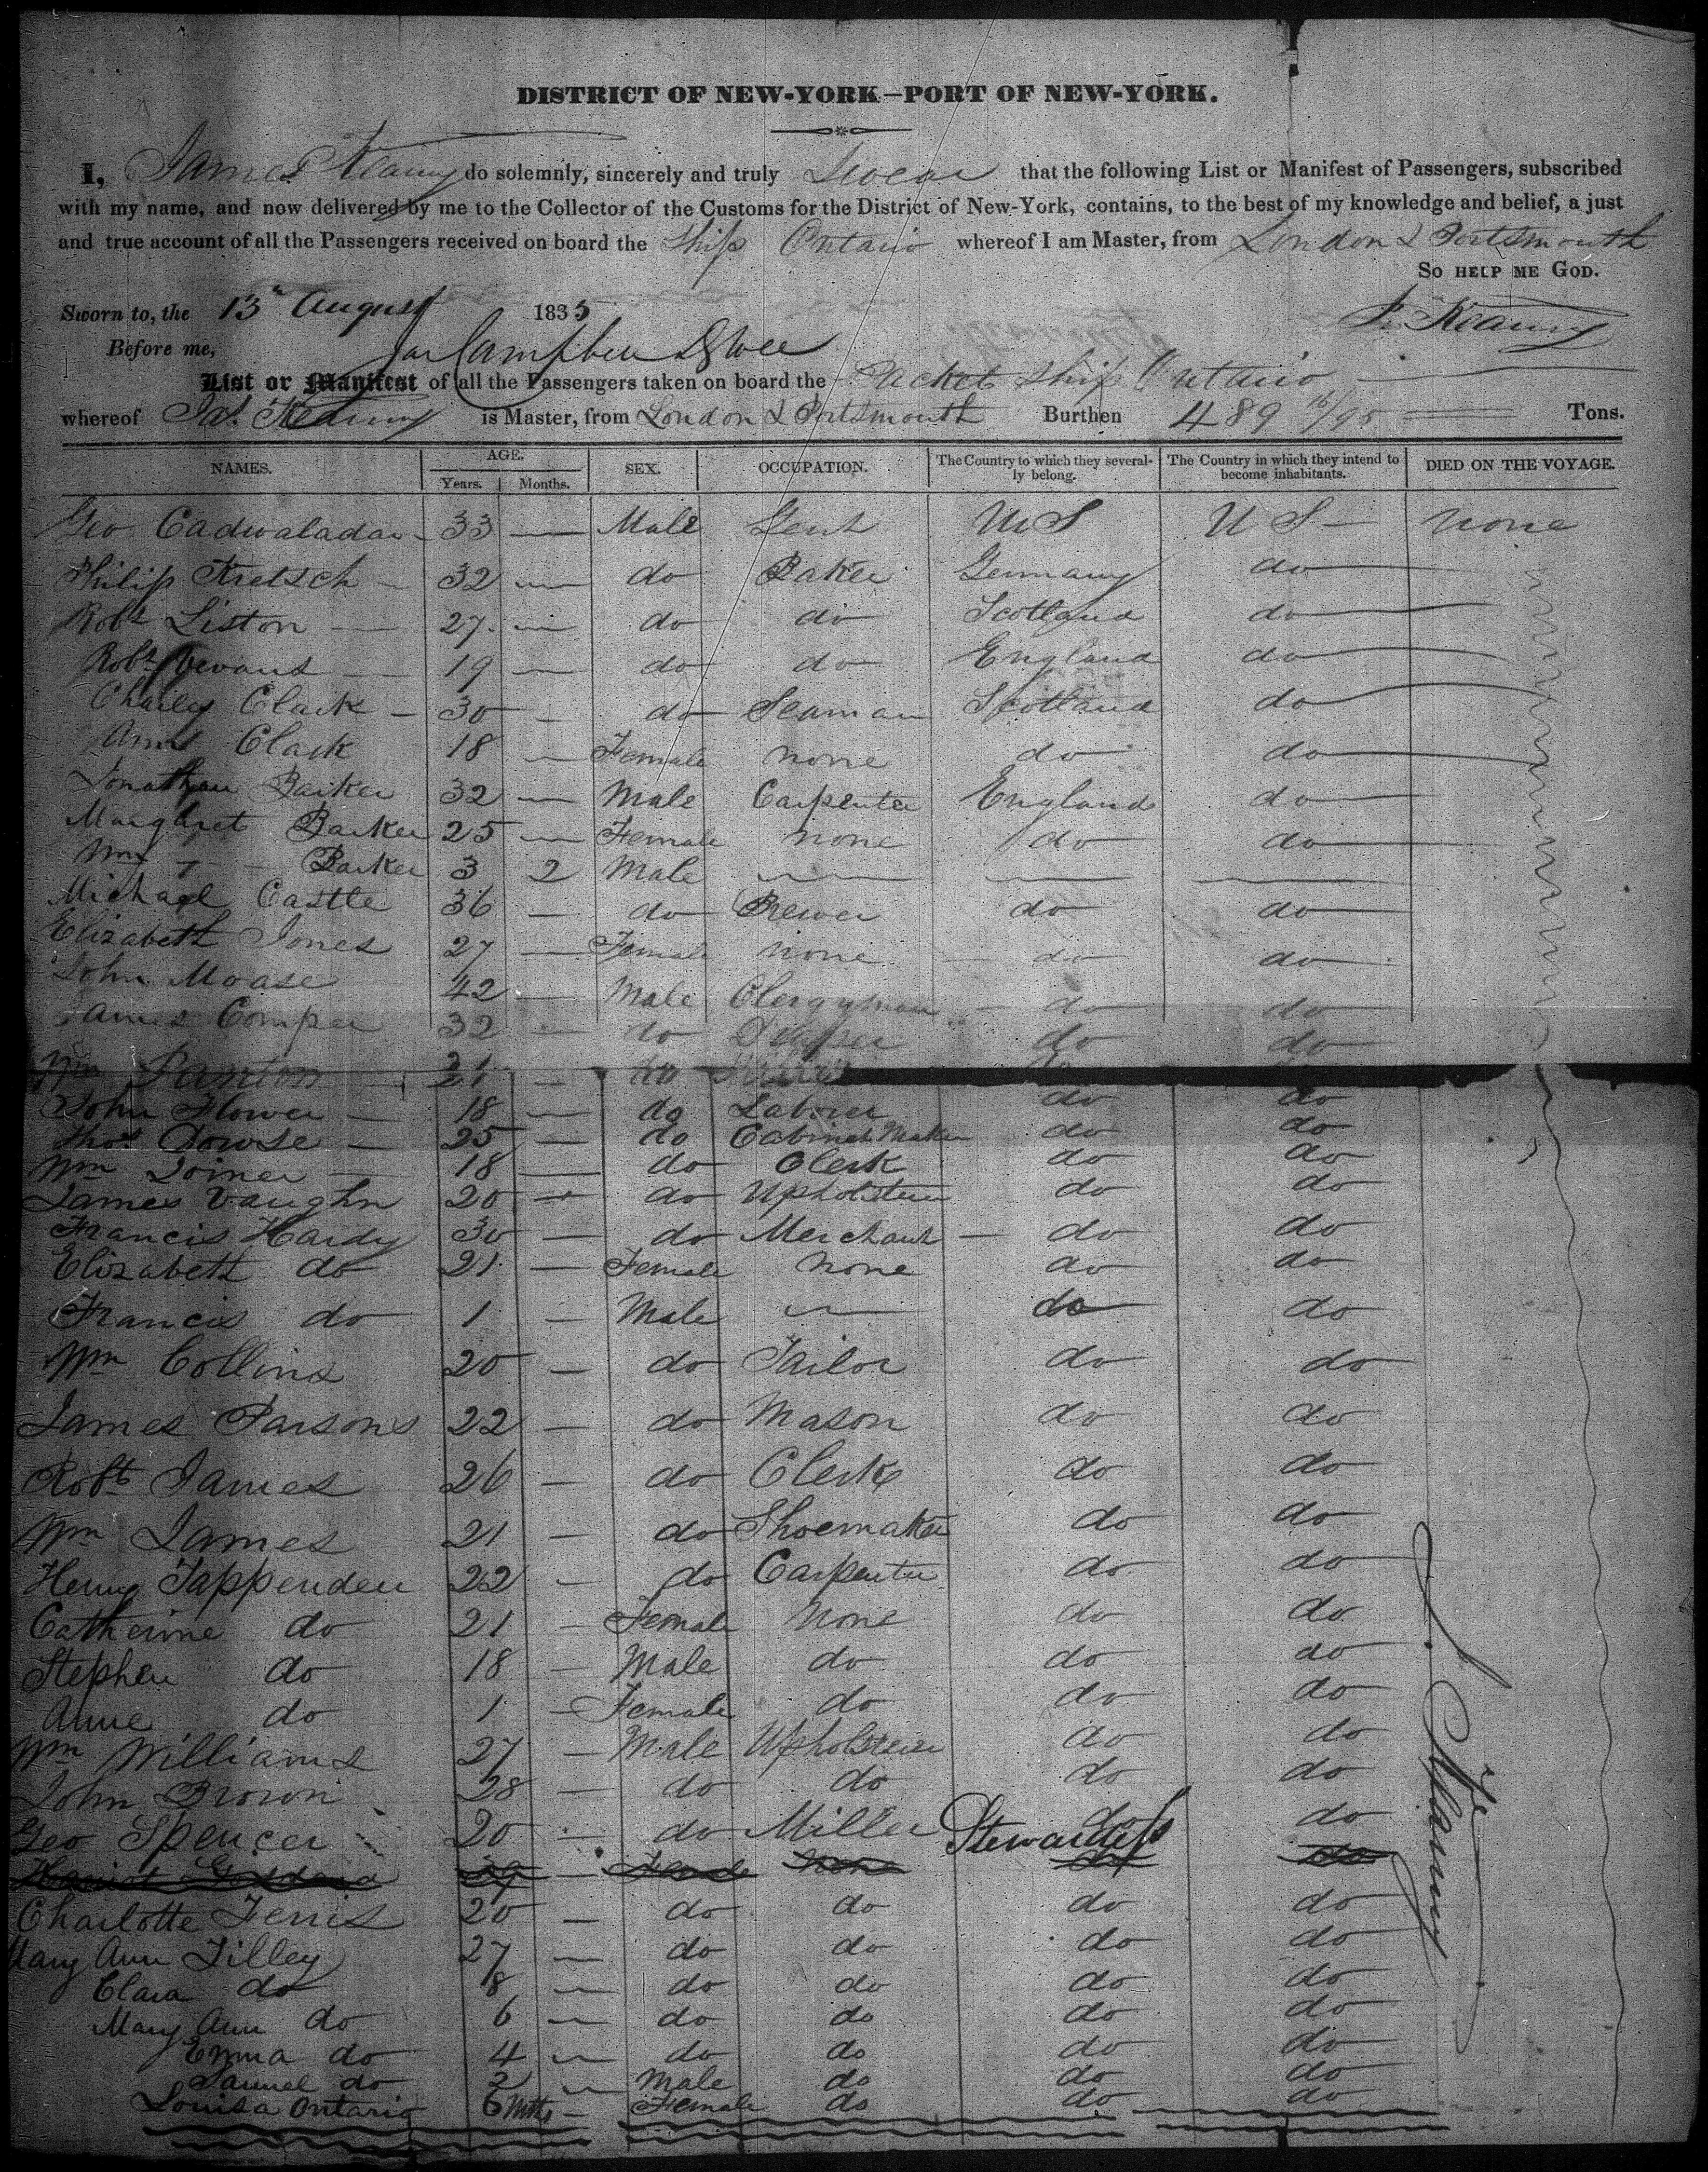 DISTRICT OF NEW-YORK—PORT OF NEW-YORK.
I, James Kearny do solemnly, sincerely and truly Swear that the following List or Manifest of Passengers, subscribed
with my name, and now delivered by me to the Collector of the Customs for the District of New-York, contains, to the best of my knowledge and belief, a just
and true account of all the Passengers received on board the Ship Ontario whereof I am Master, from London & Portsmouth
SO HELP ME GOD.
Sworn to, the 13th August 1835 J. Kearny
Before me,
List or Manifest of all the Passengers taken on board the Packet Ship Ontario
whereof Jas. Kearny is Master, from London & Portsmouth Burthen 489 16/95 Tons.
NAMES. AGE. Years. Months. SEX. OCCUPATION. The Country to which they severally belong. The Country in which they intend to become inhabitants. DIED ON THE VOYAGE.
Geo Cadwaladar 33 — Male Gent U S U S none
Philip Kretsch 32 — do Baker Germany do
Robt Liston 27 — do do Scotland do
Robt 19 — do do England do
Charles Clark 30 — do Seaman Scotland do
Ann Clark 18 — Female none do do
Jonathan Barker 32 — Male Carpenter England do
Margaret Barker 25 — Female none do do
Wm Barker 3 2 Male — — —
Michael Castle 36 — do Brewer do do
Elizabeth Jones 27 — Female none do do
John Moase 42 — Male Clergyman do do
James Comper 32 — do Draper do do
Wm Panton 21 — do do do
John Flower 18 — do Laborer do do
Thos Dowse 25 — do Cabinet Maker do do
Wm Joiner 18 — do Clerk do do
James Vaughn 20 — do Upholsterer do do
Francis Hardy 30 — do Merchant do do
Elizabeth do 21 — Female none do do
Francis do 1 — Male — do do
Wm Collins 20 — do Tailor do do
James Parsons 22 — do Mason do do
Robt James 26 — do Clerk do do
Wm James 21 — do Shoemaker do do
Henry Tappenden 22 — do Carpenter do do
Catherine do 21 — Female None do do
Stephen do 18 — Male do do do
Anne do 1 — Female do do do
Wm Williams 27 — Male Upholsterer do do
John Brown 28 — do do do do
Geo Spencer 20 — do Miller do do
Harriot Goddard 29 — Female None Stewardess do do
Charlotte Ferris 20 — do do do do
Mary Ann Tilley 27 — do do do do
Clara do 8 — do do do do
Mary Ann do 6 — do do do do
Emma do 4 — do do do do
Samuel do 2 — Male do do do
Louisa Ontario 6 Mths — Female do do do
J. Kearny